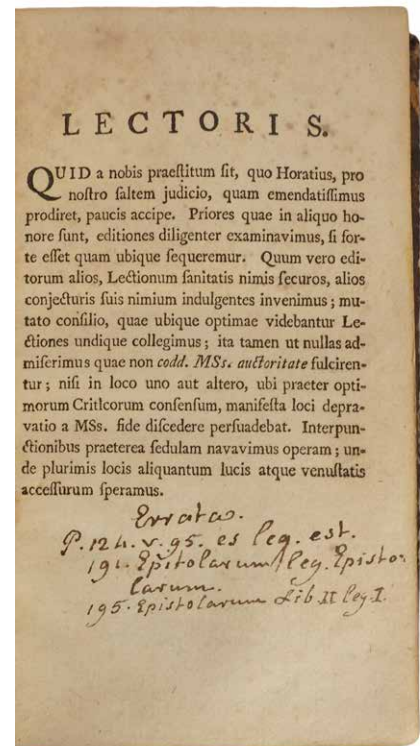 LECTORI S.
QUID a nobis praeſtitum ſit, quo Horatius, pro
noſtro ſaltem judicio, quam emendatiſſimus
prodiret, paucis accipe. Priores quae in aliquo ho-
nore ſunt, editiones diligenter examinavimus, ſi for-
te eſſet quam ubique ſequeremur. Quum vero edi-
torum alios, Lectionum ſanitatis nimis ſecuros, alios
conjecturis ſuis nimium indulgentes invenimus; mu-
tato conſilio, quae ubique optimae videbantur Le-
ctiones undique collegimus; ita tamen ut nullas ad-
miſerimus quae non codd. MSs. auctoritate fulciren-
tur; niſi in loco uno aut altero, ubi praeter opti-
morum Criticorum conſenſum, manifeſta loci depra-
vatio a MSs. fide diſcedere perſuadebat. Interpun-
ctionibus praeterea ſedulam navavimus operam; un-
de plurimis locis aliquantum lucis atque venuſtatis
acceſſurum ſperamus.
Errata.
P. 124. v. 95. es leg. est.
191. Epistolarum leg. Episto-
larum.
195. Epistolarum Lib II leg. I.